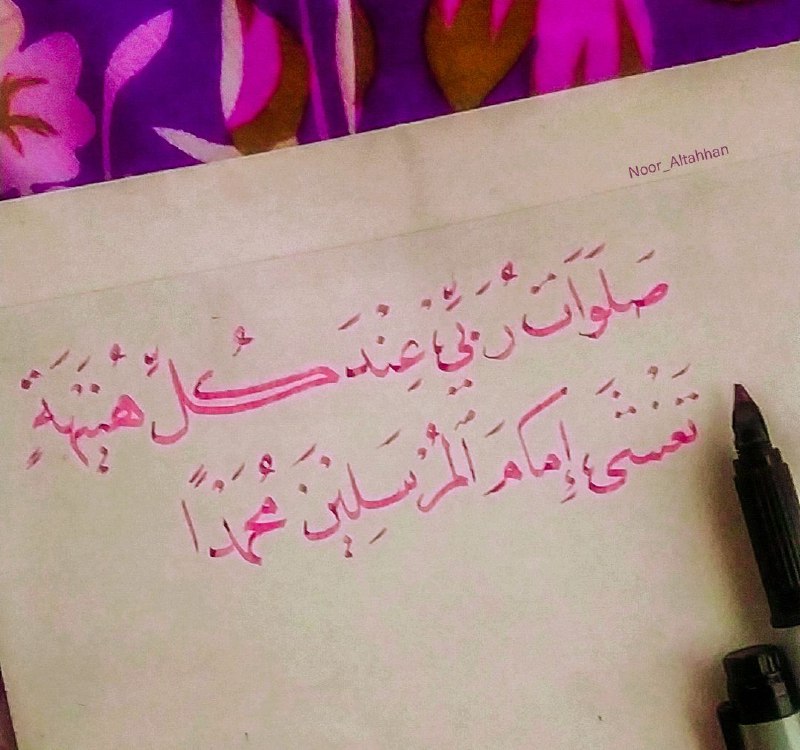 Noor_Altahhan
صَلَوَاتُ رَبِّي عِنْدَ كُلِّ هُنَيْهَةٍ
تَغْشَى إِمَامَ الْمُرْسَلِيْنَ مُحَمَّدًا